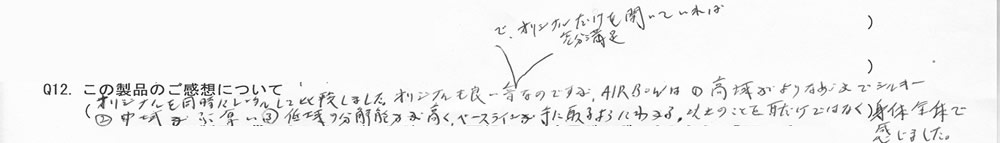 で、オリジナルだけを聞いていれば
充分満足
Q12. この製品のご感想について
オリジナルを同時にレンタルして比較しました。オリジナルも良い音なのですが、AIRBOWは①高域がよりなめらかでシルキー
②中域がぶ厚い③低域の分解能力が高く、ベースラインが手に取るようにわかる。以上のことを耳だけではなく身体全体で
感じました。